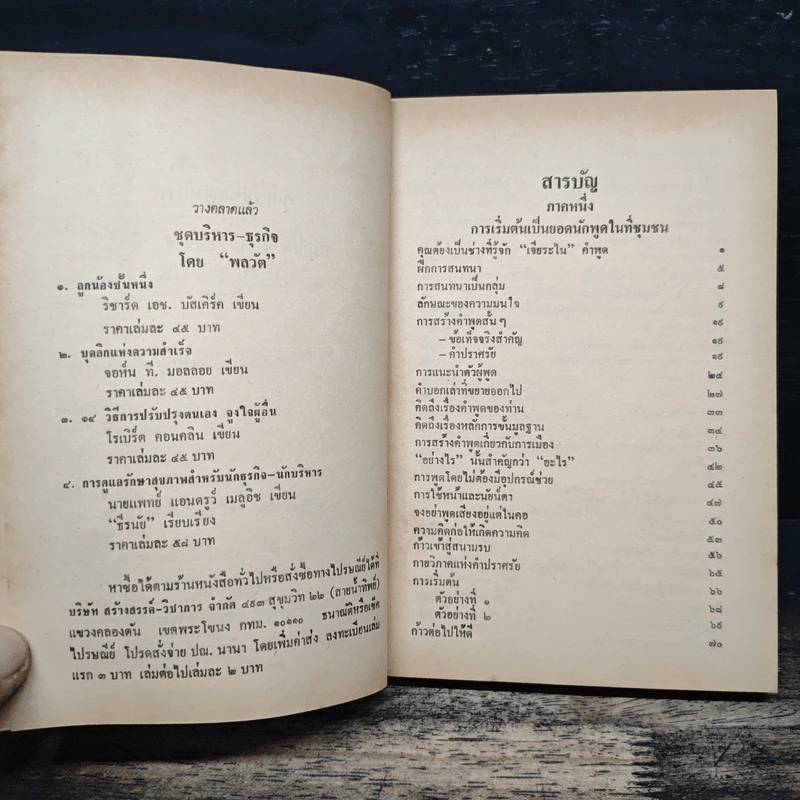 วางตลาดแล้ว
ชุดบริหาร-ธุรกิจ
โดย “พลวัต”
๑. ลูกน้องชั้นหนึ่ง
ริชาร์ด เอช. บัสเคิร์ค เขียน
ราคาเล่มละ ๔๕ บาท
๒. บุคลิกแห่งความสำเร็จ
จอห์น ที. มอลลอย เขียน
ราคาเล่มละ ๔๕ บาท
๓. ๑๔ วิธีการปรับปรุงตนเอง จูงใจผู้อื่น
โรเบิร์ต คอนคลิน เขียน
ราคาเล่มละ ๔๕ บาท
๔. การดูแลรักษาสุขภาพสำหรับนักธุรกิจ-นักบริหาร
นายแพทย์ แอนดรูว์ เมลูอิช เขียน
“ธีรนัย” เรียบเรียง
ราคาเล่มละ ๕๘ บาท
หาซื้อได้ตามร้านหนังสือทั่วไปหรือสั่งซื้อทางไปรษณีย์ได้ที่
บริษัท สร้างสรรค์-วิชาการ จำกัด ๔๙๓ สุขุมวิท ๒๒ (สายน้ำทิพย์)
แขวงคลองตัน เขตพระโขนง กทม. ๑๐๑๑๐ ธนาณัติหรือเช็ค
ไปรษณีย์ โปรดสั่งจ่าย ปณ. นานา โดยเพิ่มค่าส่ง ลงทะเบียนเล่ม
แรก ๓ บาท เล่มต่อไปเล่มละ ๒ บาท
สารบัญ
ภาคหนึ่ง
การเริ่มต้นเป็นยอดนักพูดในที่ชุมชน
คุณต้องเป็นช่างที่รู้จัก “เจียระไน” คำพูด ๑
ฝึกการสนทนา ๕
การสนทนาเป็นกลุ่ม ๘
ลักษณะของความมั่นใจ ๙
การสร้างคำพูดสั้น ๆ ๑๙
- ข้อเท็จจริงสำคัญ ๑๙
- คำปราศรัย ๑๙
การแนะนำตัวผู้พูด ๒๔
คำบอกเล่าที่ขยายออกไป ๒๗
คิดถึงเรื่องคำพูดของท่าน ๓๓
คิดถึงเรื่องหลักการขั้นมูลฐาน ๓๔
การสร้างคำพูดเกี่ยวกับการเมือง ๓๖
“อย่างไร” นั้นสำคัญกว่า “อะไร” ๔๒
การพูดโดยไม่ต้องมีอุปกรณ์ช่วย ๔๕
การใช้หน้าและนัยน์ตา ๔๗
จงอย่าพูดเสียงอยู่แต่ในคอ ๕๐
ความคิดก่อให้เกิดความคิด ๕๓
ก้าวเข้าสู่สนามรบ ๕๖
กายวิภาคแห่งคำปราศรัย ๖๕
การเริ่มต้น ๖๖
ตัวอย่างที่ ๑ ๖๘
ตัวอย่างที่ ๒ ๖๙
ก้าวต่อไปให้ดี ๗๐